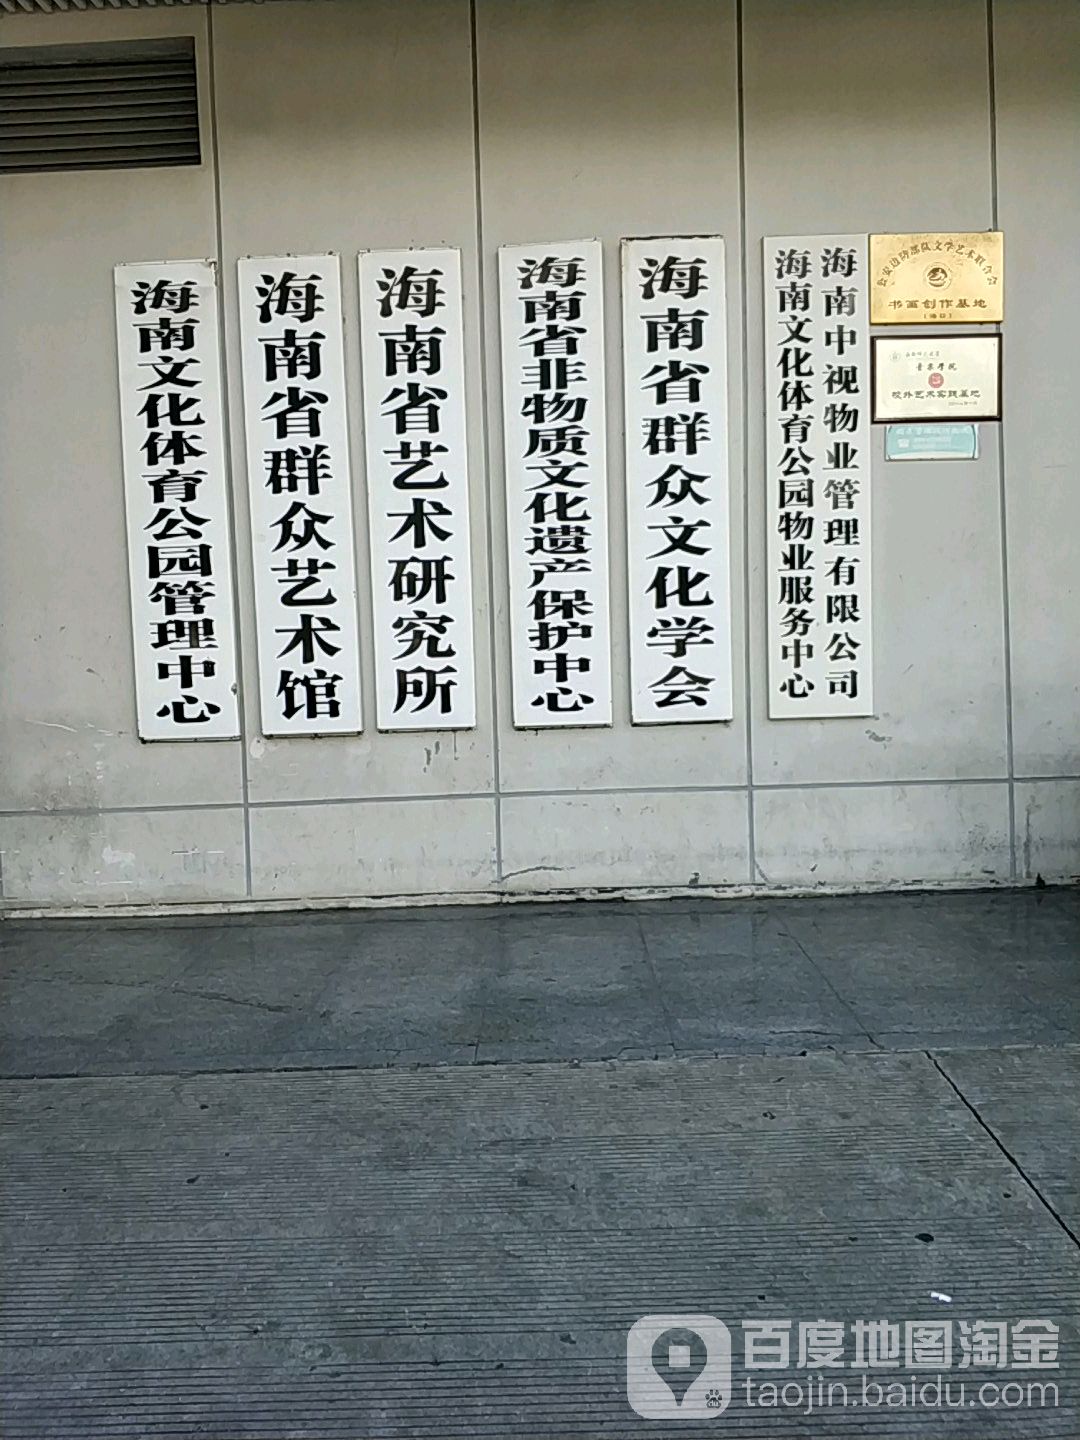 海南文化体育公园管理中心
海南省群众艺术馆
海南省艺术研究所
海南省非物质文化遗产保护中心
海南省群众文化学会
海南中视物业管理有限公司
海南文化体育公园物业服务中心
公安边防部队文学艺术联合会
书画创作基地
（海口）
音乐学院
校外艺术实践基地
百度地图淘金
taojin.baidu.com